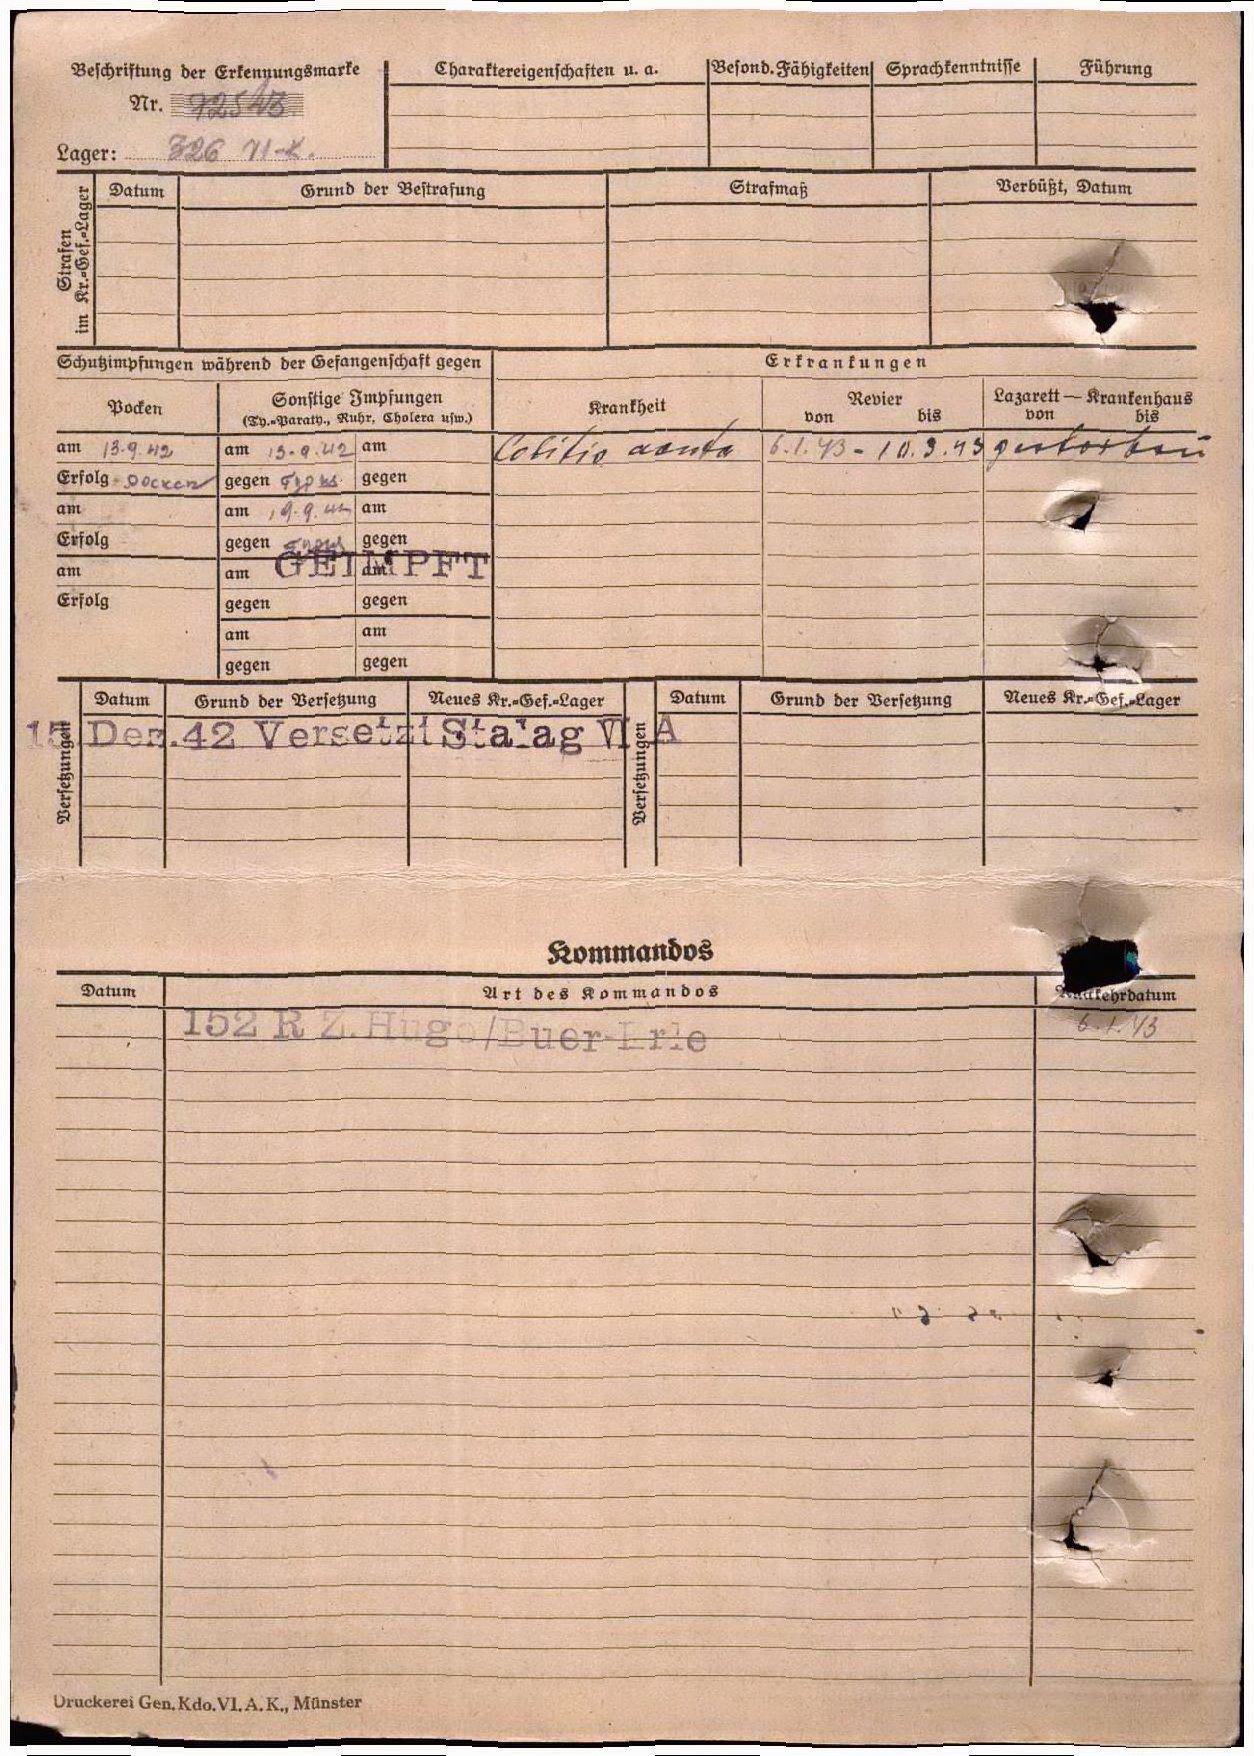 Beschriftung der Erkennungsmarke
Nr. 72543
Lager: 326 VI-K.
Charaktereigenschaften u. a.
Besond. Fähigkeiten
Sprachkenntnisse
Führung
Strafen
im Kr.=Gef.=Lager
Datum
Grund der Bestrafung
Strafmaß
Verbüßt, Datum
Schutzimpfungen während der Gefangenschaft gegen
Erkrankungen
Pocken
Sonstige Impfungen
(Ty.=Paraty., Ruhr, Cholera usw.)
Krankheit
Revier
von bis
Lazarett — Krankenhaus
von bis
am 13.9.42 am 13.9.42 am
Colitis acuta 6.1.43 - 10.3.43 gestorben
Erfolg Pocken gegen Typus gegen
am am 19.9.42 am
Erfolg gegen Typus gegen
GEIMPFT
am am am
Erfolg gegen gegen
am am
gegen gegen
Versetzungen
Datum Grund der Versetzung Neues Kr.=Gef.=Lager
Versetzungen
Datum Grund der Versetzung Neues Kr.=Gef.=Lager
15. Dez. 42 Versetzt Stalag VI A
Kommandos
Datum Art des Kommandos Rückkehrdatum
152 R Z. Hugo/Buer-Erle 6.1.43
Druckerei Gen. Kdo. VI. A. K., Münster